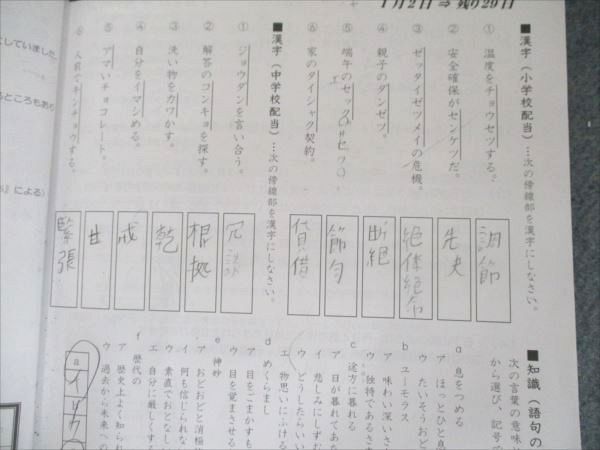 1月2日⇒残り29日
■漢字（小学校配当）…次の傍線部を漢字にしなさい。
① 温度をチョウセツする。
調節
② 安全確保がセンケツだ。
先決
③ ゼッタイゼツメイの危機。
絶体絶命
④ 親子のダンゼツ。
断絶
⑤ 端午のセック
節句
⑥ 家のタイシャク契約。
貸借
■漢字（中学校配当）…次の傍線部を漢字にしなさい。
① ジョウダンを言い合う。
冗談
② 解答のコンキョを探す。
根拠
③ 洗い物をカワかす。
乾
④ 自分をイマシめる。
戒
⑤ アマいチョコレート。
甘
⑥ 人前でキンチョウする。
緊張
■知識（語句の
次の言葉の意味
から選び、記号で
a 息をつめる
ア ほっとひと息
ウ たいそうおど
b ユーモラス
ア 味わい深いさ
ウ 独特であるさま
c 途方に暮れる
ア 日が暮れてあた
イ 悲しみにしずむ
ウ どうしたらいい
エ 物思いにふける
d めくらまし
ア 目をごまかすも
ウ 目を覚まさせる
e 神妙
ア おどおどと消極
イ 何も信じられな
ウ 素直でおとなし
エ 自分に厳しくする
f 歴代の
ア 歴史上よく知られ
ウ 過去から未来への
a
イ
していました
ところもあ
』による）